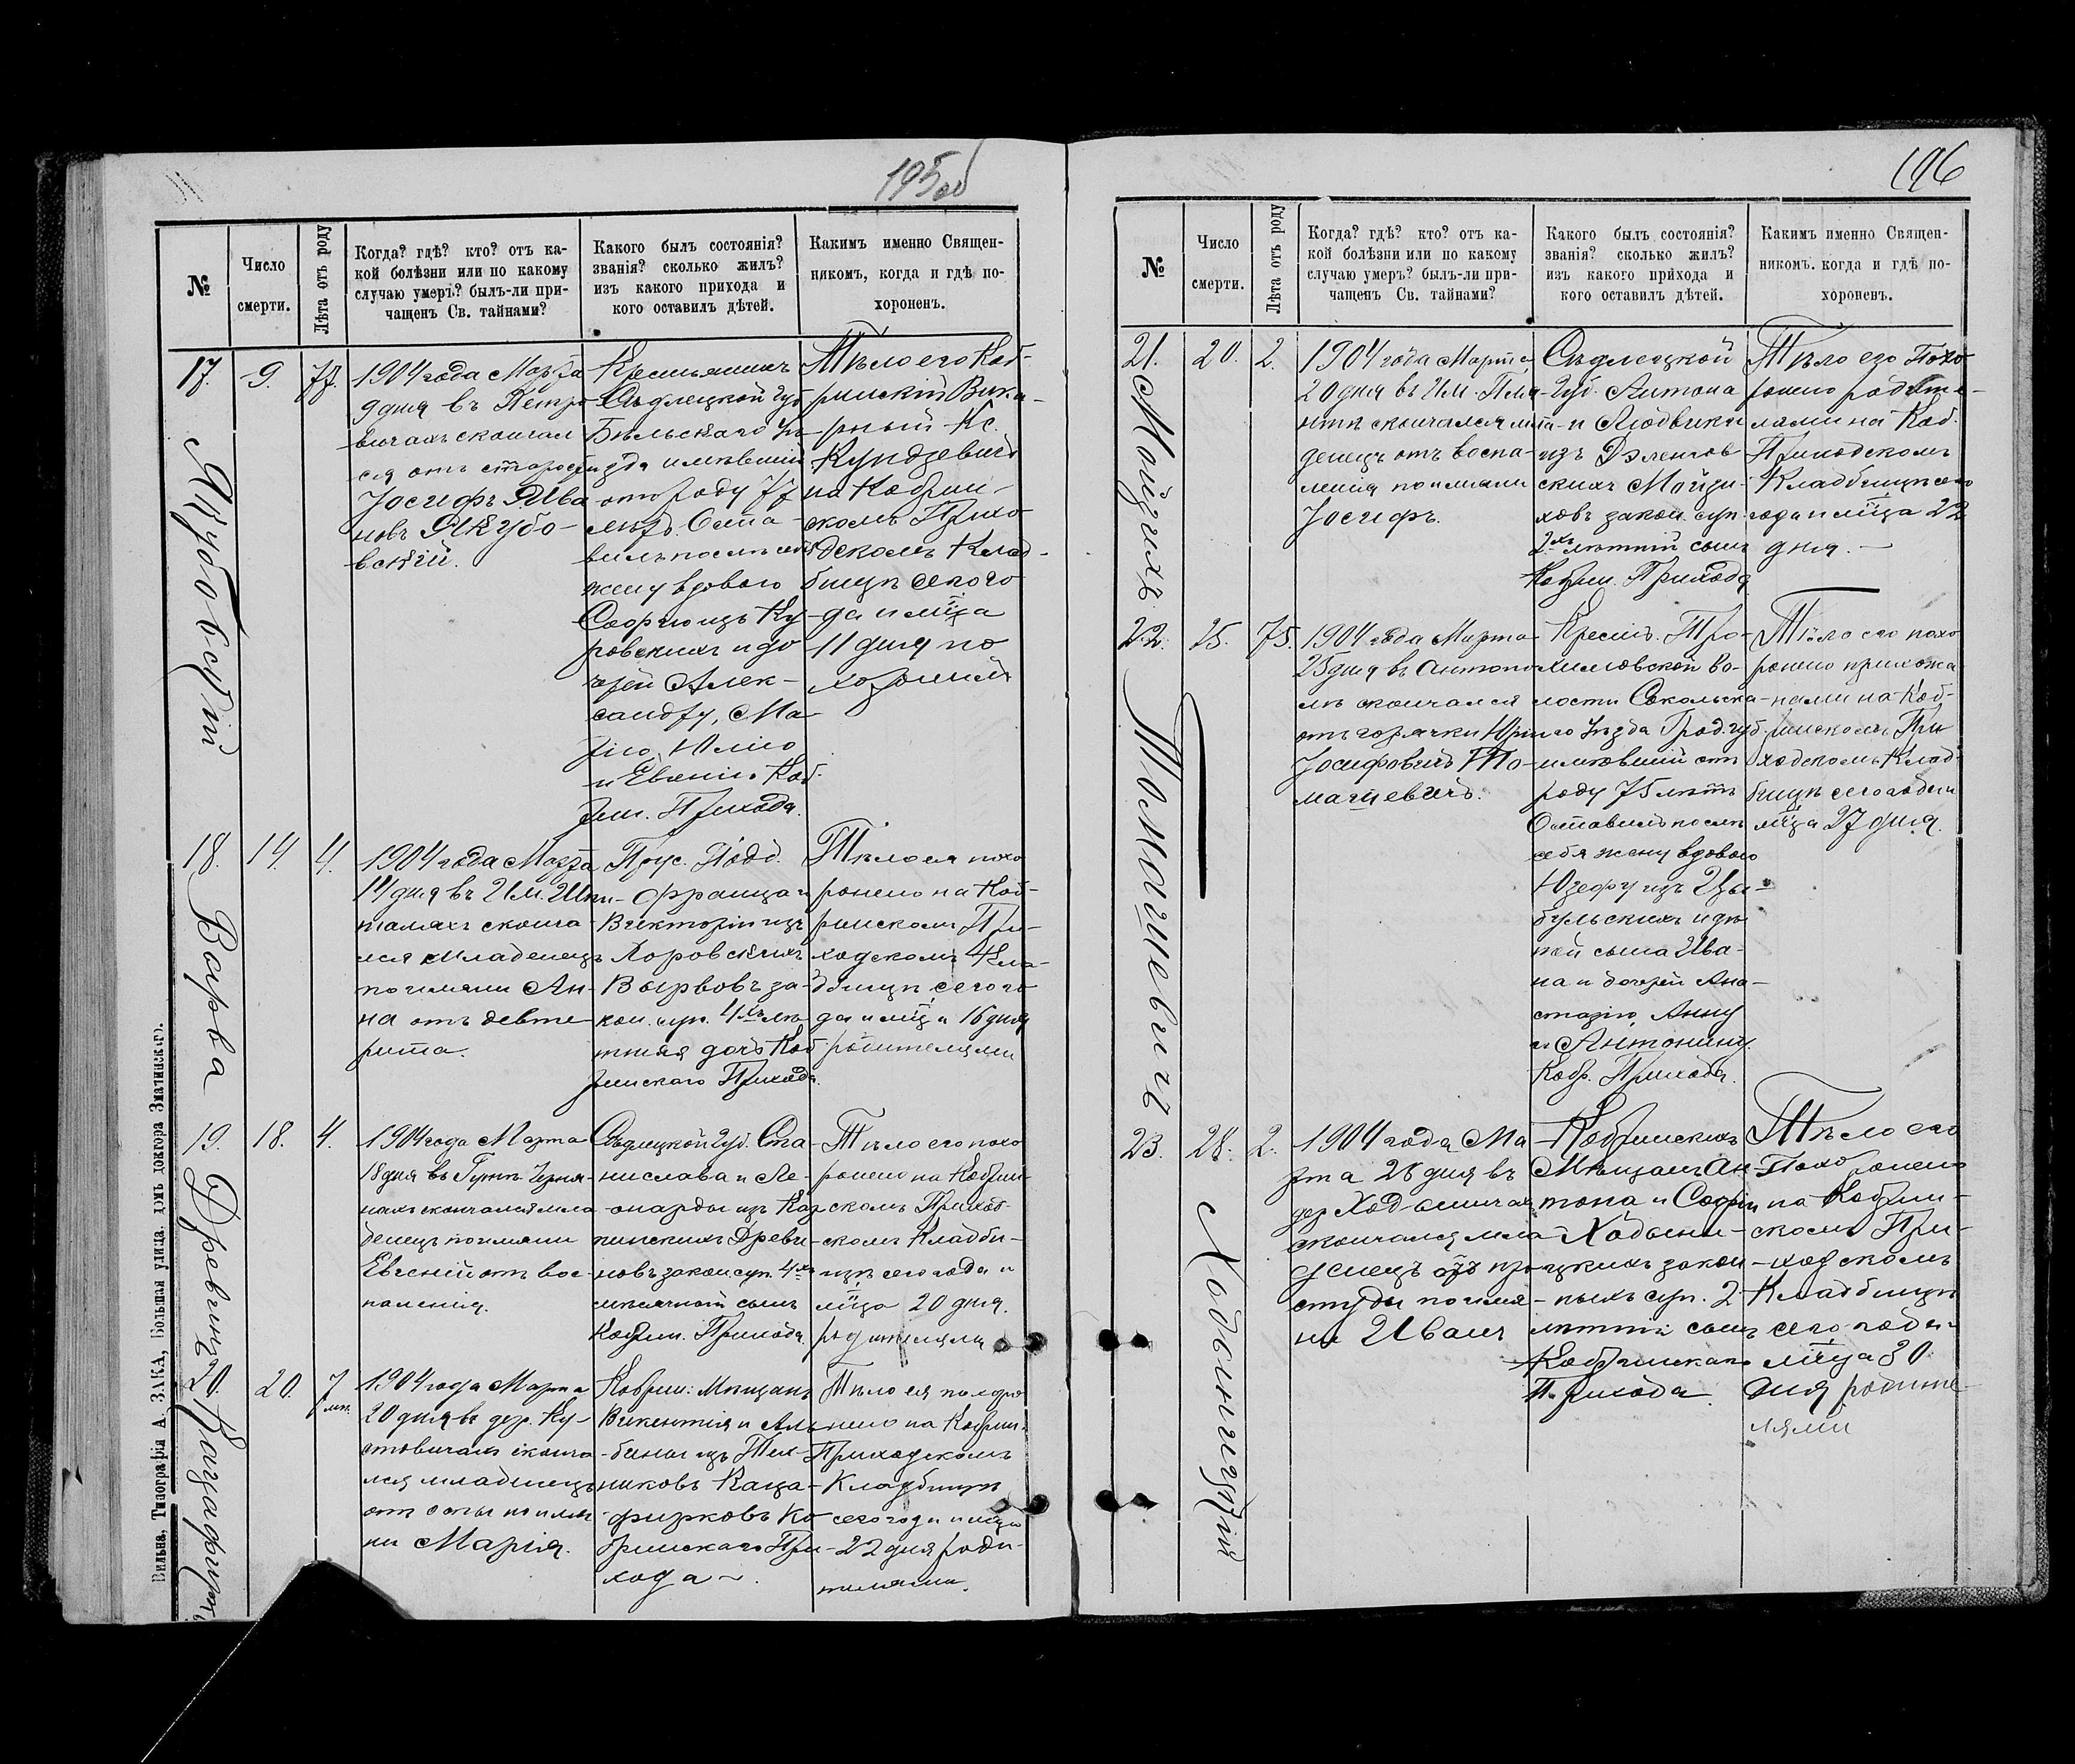 195об
№
Число
смерти.
Лѣта отъ роду
Когда? гдѣ? кто? отъ ка-
кой болѣзни или по какому
случаю умеръ? былъ-ли при-
чащенъ Св. тайнами?
Какого былъ состоянія?
званія? сколько жилъ?
изъ какого прихода и
кого оставилъ дѣтей.
Какимъ именно Священ-
никомъ, когда и гдѣ по-
хороненъ.
17.
Якубовскій
9.
77.
1904 года Марта
9 дня въ Петро-
вичахъ скончал
ся отъ старости
Іосифъ Ива
новъ Якубо-
вскій.
Крестьянинъ
Сѣдлецкой Губ
Бѣльскаго уѣ
зда имѣвшій
отъ роду 77
лѣтъ. Оста-
вилъ послѣ себя
жену вдовою
Софію изъ Ку
ровскихъ и до
черей Алек-
сандру, Ма
рію, Юлію
и Евгенію Коб.
рин. Прихода.
Тѣло его Коб-
ринскій Вика-
рный Кс.
Кундзевичъ
на Кобрин-
скомъ Прихо
дскомъ Клад-
бищѣ сего го
да и мца
11 дня по
хоронилъ
18.
Ворва
14.
4.
1904 года Марта
14 дня въ Им. Шпи-
таляхъ сконча
лся младенецъ
по имяни Ан-
на отъ дефте
рита.
Прус. Подд.
Франца и
Викторіи изъ
Хоровскихъ
Вырвовъ за-
кон. суп. 4хъ лѣ
тняя дочь Коб
ринскаго Прихода.
Тѣло ея похо
ронено на Коб-
ринскомъ При-
ходскомъ Кла-
дбищѣ сего го
да и мца 16 дня
родителями
19.
Древинъ
18.
4.
1904 года Марта
18 дня въ
скончался мла
денецъ по имяни
Евгеній отъ вос-
паленія.
Сѣдлецкой Губ. Ста
нислава и Ле-
онарды изъ
Древи-
новъ закон. суп. 4хъ
мѣсячный сынъ
Кобрин. Прихода
Тѣло его похо
ронено на Кобрин-
скомъ Приход-
скомъ Кладби-
щѣ сего года и
мца 20 дня.
родителями
20.
20.
7
лѣт.
1904 года Марта
20 дня въ дер. Ку-
стовичахъ сконча
лся младенецъ
отъ оспы по имя
ни Марія.
Кобрин. Мѣщанъ
Викентія и Аль
бины изъ
Каца-
фирковъ Ко
бринскаго При
хода
Тѣло ея похоро
нено на Кобрин.
Приходскомъ
Кладбищѣ
сего года и мца
22 дня роди-
телями.
Вильна, Типографія А. ЗАКА, Большая улица, домъ доктора
196
№
Число
смерти.
Лѣта отъ роду
Когда? гдѣ? кто? отъ ка-
кой болѣзни или по какому
случаю умеръ? былъ-ли при-
чащенъ Св. тайнами?
Какого былъ состоянія?
званія? сколько жилъ?
изъ какого прихода и
кого оставилъ дѣтей.
Какимъ именно Священ-
никомъ, когда и гдѣ по-
хороненъ.
21.
20.
2.
1904 года Марта
20 дня въ Им. Пля
нтѣ скончался мла-
денецъ отъ воспа-
ленія по имяни
Іосифъ.
Сѣдлецкой
Губ. Антона
и Людвики
изъ
скихъ
ховъ закон. суп.
2хъ лѣтній сынъ
Кобрин. Прихода
Тѣло его Похо
ронено родите-
лями на Коб.
Приходскомъ
Кладбищѣ сего
года и мца 22
дня.
22.
Томашевичъ
25.
75.
1904 года Марта
25 дня въ Антопо
лѣ скончался
отъ горячки Юрій
Іосифовичъ То-
машевичъ.
Крестьн. Тро-
химовской во-
лости Сокольска
го Уѣзда Грод. губ.
имѣвшій отъ
роду 75 лѣтъ
Оставилъ послѣ
себя жену вдовою
Юзефу изъ Цы-
бульскихъ и дѣ
тей сына Ива-
на и дочерей Ана-
стазію, Анну
и Антонину.
Кобр. Прихода.
Тѣло его похо
ронено прихожа
нами на Коб-
ринскомъ При
ходскомъ Клад-
бищѣ сего года и
мца 27 дня.
23.
Ходыницкій
28.
2.
1904 года Ма
рта 28 дня въ
дер Ходыничах
скончался мла
денецъ отъ про
студы по имя-
ни Иванъ
Кобринскихъ
Мѣщанъ Ан-
тона и Софіи
Ходыни-
цкихъ закон-
ныхъ суп. 2
лѣтній сынъ
Кобринскаго
Прихода
Тѣло его
Похоронено
на Кобрин-
скомъ При-
ходскомъ
Кладбищѣ
сего года и
мца 30
дня родите
лями